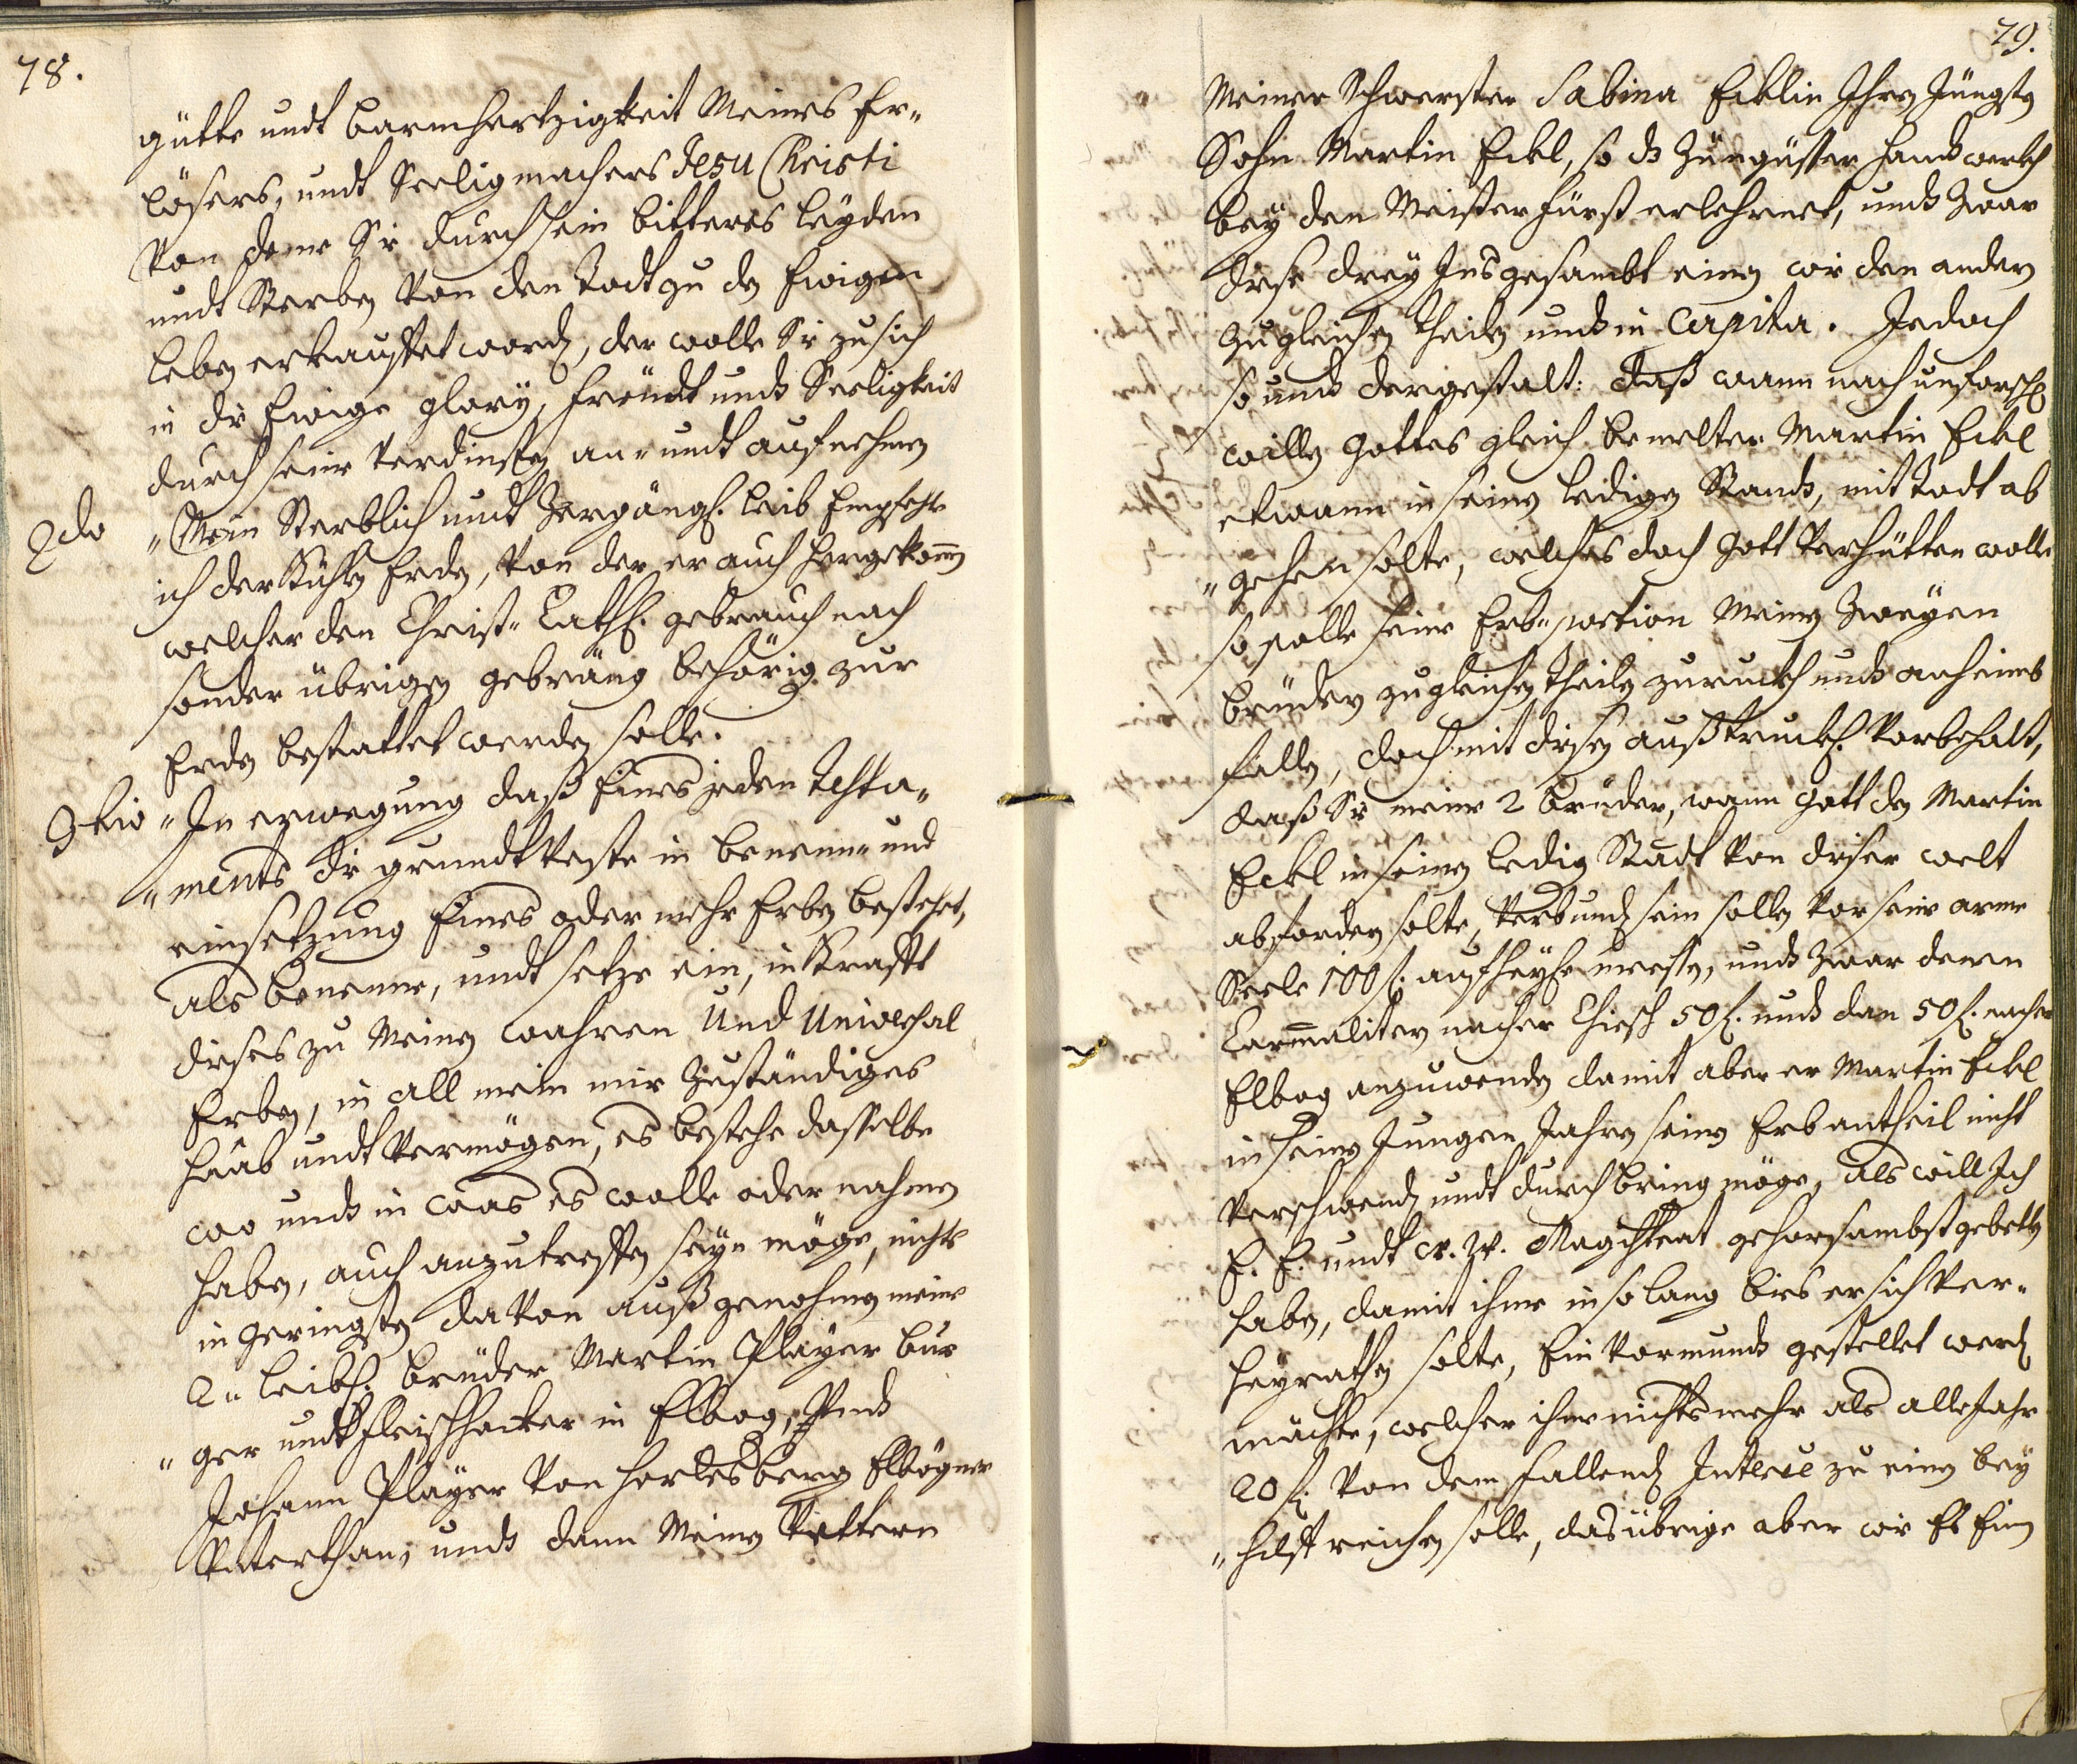 78.
gütte undt barmhertzigkeit Meines Er„
lösers, undt Seeligmachers Jesu Christi
von deme Sie durch sein bitteres leyden
undt Sterben von den Todt zu den Ewigen
leben erkauffet worden, der wolle Sie zu sich
in die Ewige glory, freüdt undt Seeligkeit
durch seine verdinsten an- undt aufnehmen
2do „Mein Sterblich undt Zergängl. leib Empfehle
ich der Kühlen Erden, von der er auch hergekommen
welcher den Christ- Cathl. gebrauch nach
sonder übrigen gebräng behörig zur
Erden bestattet werden solle.
3tio „In erwegung daß Eines jeden Testa„
„ments die grundtveste in benenn- und
einsetzung Eines oder mehr Erben bestehet,
als benenne, undt setze ein, in Krafft
dieses zu Meinen wahren Und Universal
Erben, in all mein mir Zuständiges
Haab undt Vermögen, es bestehe dasselbe
wo undt in waß es wolle oder nahmen
haben, auch anzutreffen seye möge, nichts
in geringsten davon außgenohmen meine
2„ leibl. brüder Martin Player bur
„ger undt Fleischhacker in Elbog, Undt
Johann Player von Horlesberg Elbögner
Unterthan, undt dann Meinen Vettern
79.
Meiner Schwester Sabina Ecklin Ihren Jüngsten
Sohn Martin Eckl, so ds Züngüsser handtwerkh
bey den Meister Fürst erlehrnet, undt Zwar
diese drey Insgesambt einen wie den andern
zu gleichen theilen undt in Capita. Jedoch
so undt dergestalt: daß wann nach unforschl.
willen Gottes gleich bemelter Martin Eckl
etwann in seinen ledigen Standt, mit Todt ab
„gehen solte, welches doch Gott verhütten wolle
so solle seine Erb-portion Meinen Zweyen
brüdern zu gleichen theilen zuruckh undt anheimbs
fallen, doch mit diesen außtruckl. vorbehalt,
daß Sie meine 2 brüder, wann Gott den Martin
Eckl in seinen ledig Standt von dieser welt
abfordern solte, verbunden sein sollen vor seine arme
Seele 100 f. auf heyl. messen, undt Zwar denen
Carmeliter nacher Chiesch 50 f. undt dan 50 f. nacher
Elbog anzuwenden damit aber er Martin Eckl
in seinen Jungen Jahren seinen Erbantheil nicht
verschwend undt durchbring möge, als will Ich
E. E. undt w. w. Magistrat gehorsambst gebetten
haben, damit ihme in so lang bies er sich ver„
heyrathen solte, Ein Vormundt gestellet werden
mächte, welcher ihme nichts mehr als alle Jahr
20 f. von dem fallend Interesse zu einen bey
„hilff reichen solle, das übrige aber wie Es Ein